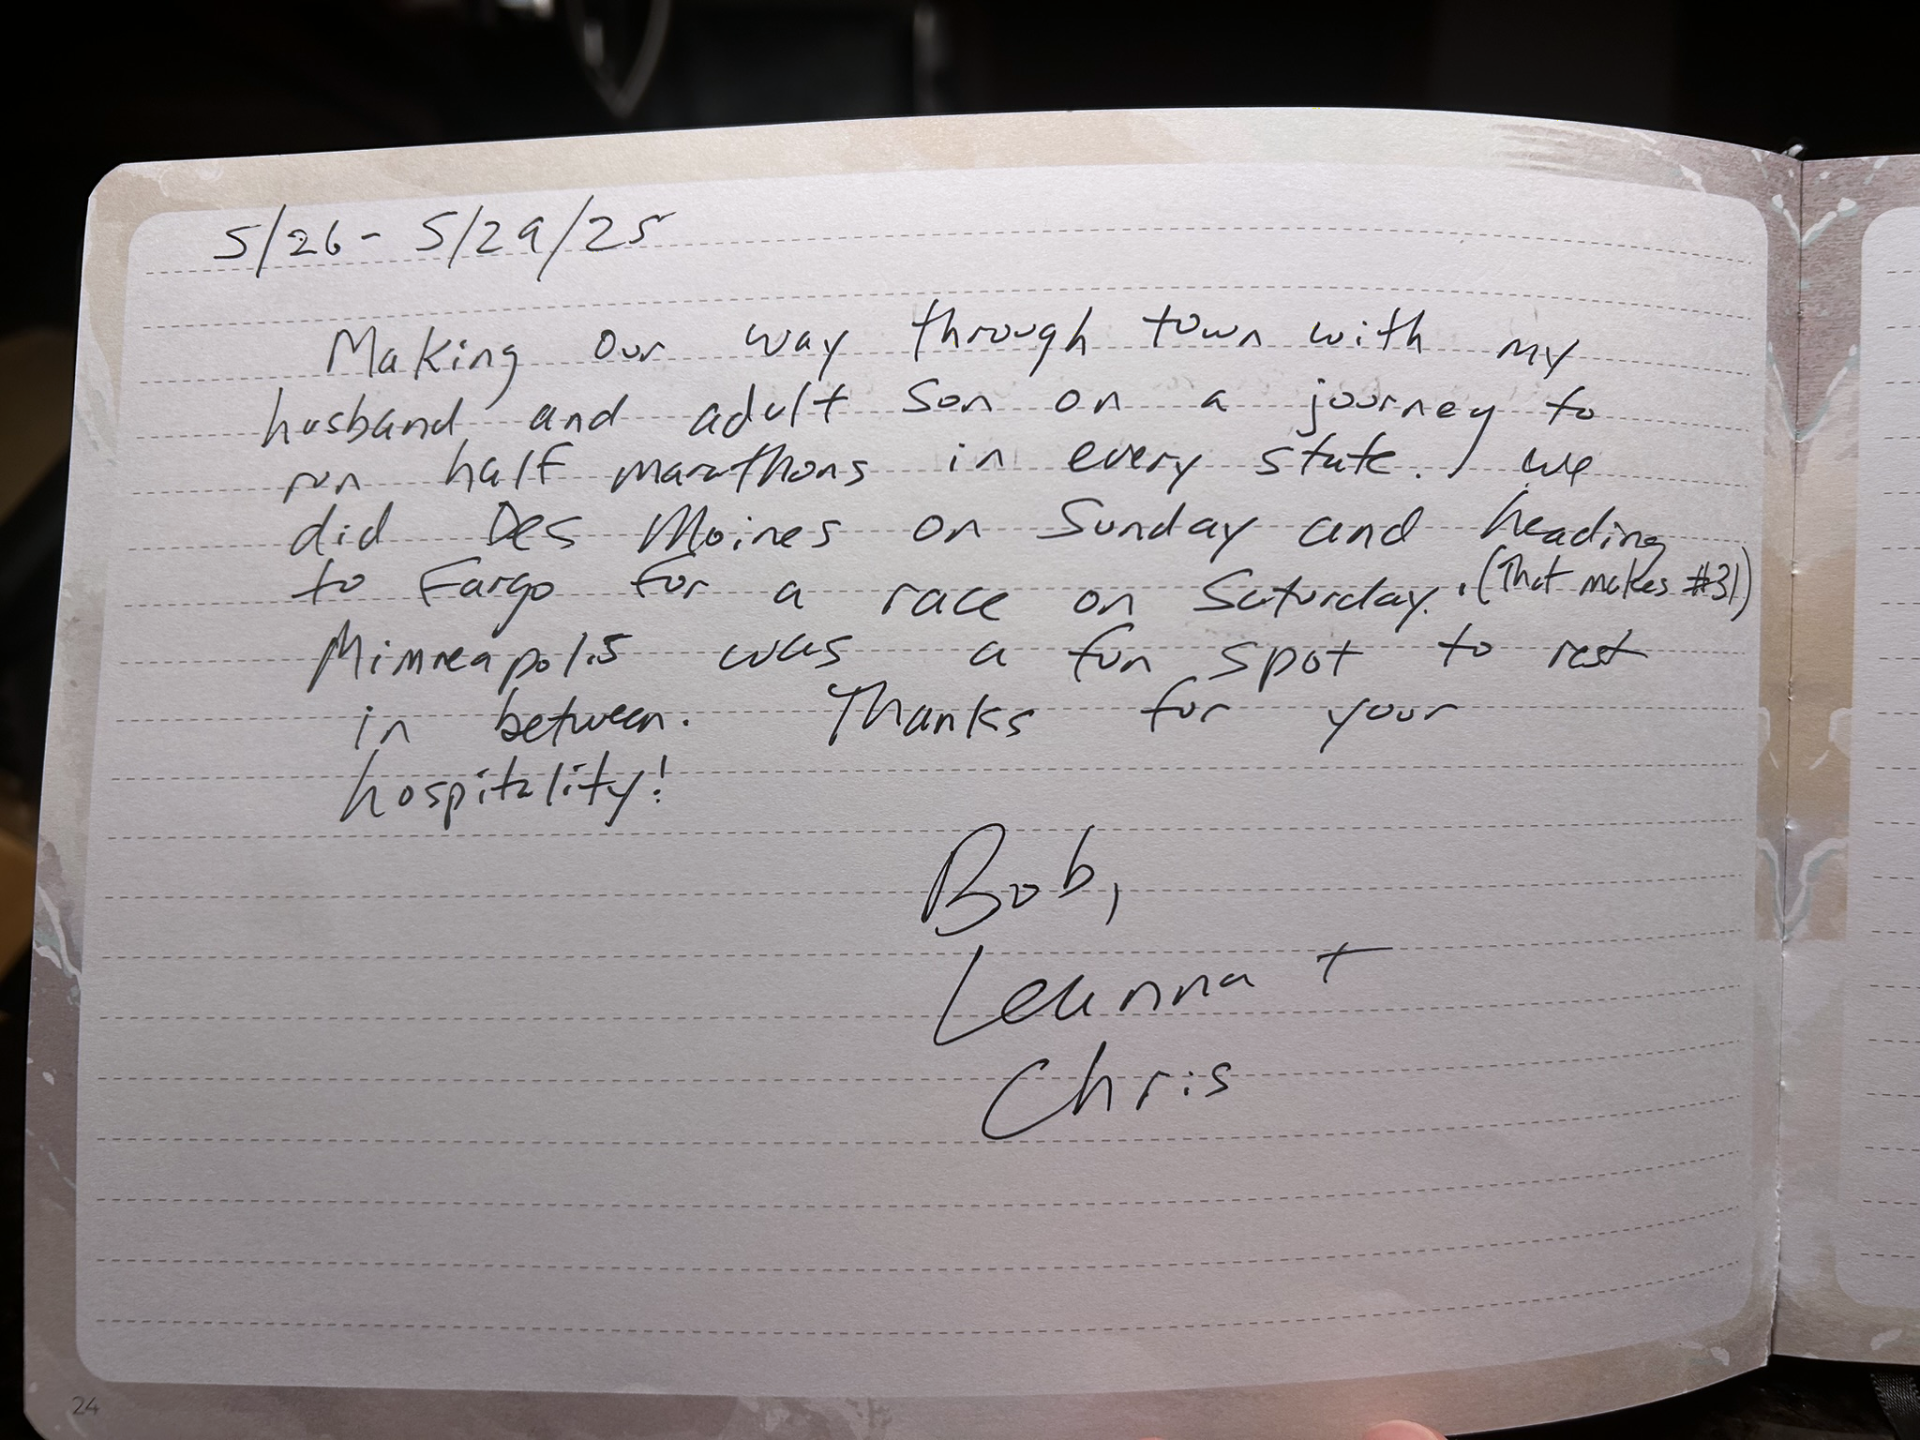 5/26 - 5/29/25
Making our way through town with my
husband and adult son on a journey to
run half marathons in every state. We
did Des Moines on Sunday and heading
to Fargo for a race on Saturday. (That makes #31)
Minneapolis was a fun spot to rest
in between. Thanks for your
hospitality!
Bob,
Leanna +
Chris
24